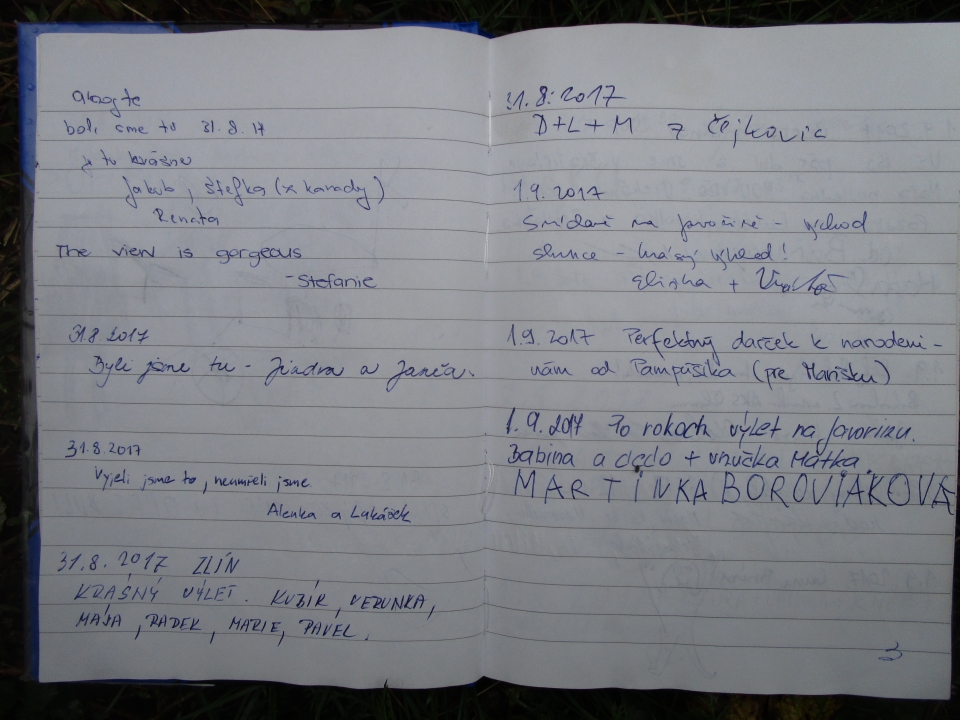 Ahojte
boli sme tu 31.8.17
je tu krásne
Jakub, Štefka (x karady)
Renata
The view is gorgeous
-Stefanie
31.8 2017
Byli jsme tu - Jindra a Janča.
31.8.2017
Vyjeli jsme to, neumřeli jsme
Alenka a Lukášek
31.8.2017 ZLÍN
KRÁSNÝ VÝLET. KUBÍK, VERUNKA,
MÁJA, RADEK, MARIE, PAVEL.
31.8.2017
D+L+M z Čejkovic
1.9.2017
Snídaně na Javořině - východ
slunce - krásný východ!
Eliška +
1.9.2017 Perfektný darček k narodeni-
nám od Pampúšika (pre Marišku)
1.9.2017 Po rokoch výlet na Javorinu.
Babina a dedo + vnučka Maťka.
MARTINKA BOROVIAKOVÁ
3